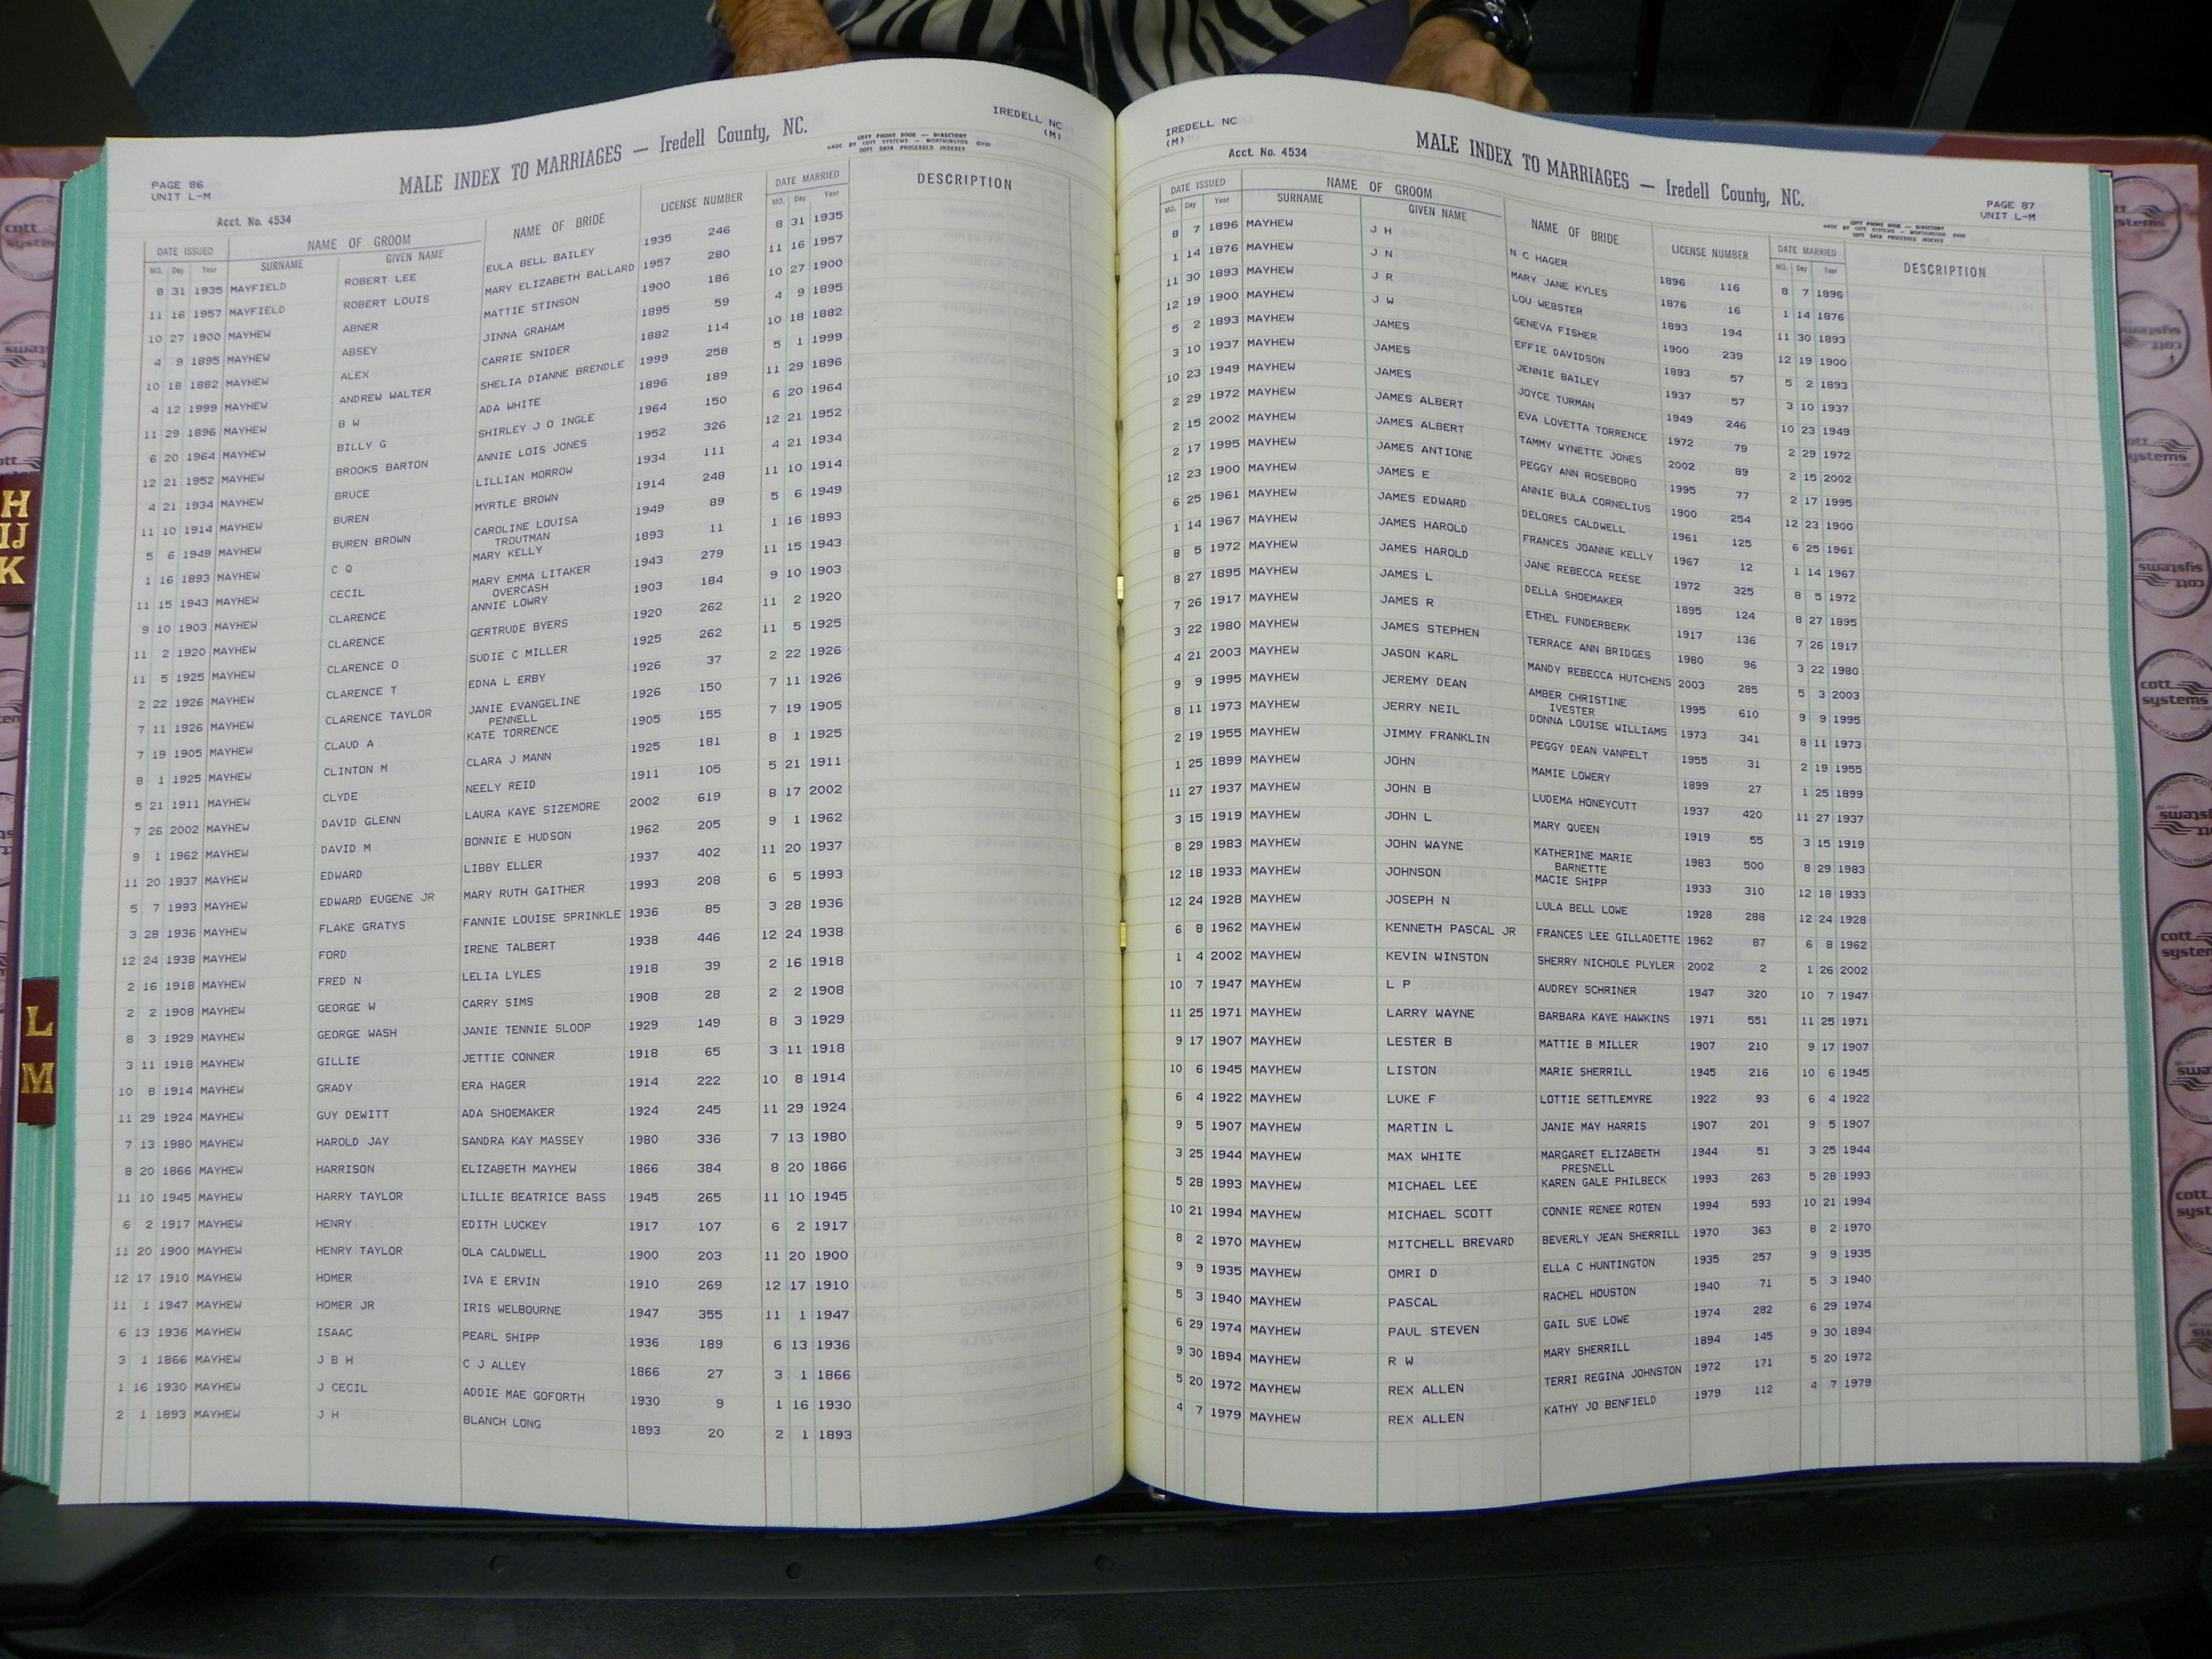 IREDELL NC
(M)
MALE INDEX TO MARRIAGES — Iredell County, NC.
COTT PHONE BOOK — DIRECTORY
MADE BY COTT SYSTEMS — WORTHINGTON OHIO
COTT DATA PROCESSED INDEXES
PAGE 86
UNIT L-M
Acct. No. 4534
DATE ISSUED NAME OF GROOM NAME OF BRIDE LICENSE NUMBER DATE MARRIED DESCRIPTION
MO. Day Year SURNAME GIVEN NAME MO. Day Year
8 31 1935 MAYFIELD ROBERT LEE EULA BELL BAILEY 1935 246 8 31 1935
11 16 1957 MAYFIELD ROBERT LOUIS MARY ELIZABETH BALLARD 1957 280 11 16 1957
10 27 1900 MAYHEW ABNER MATTIE STINSON 1900 186 10 27 1900
4 9 1895 MAYHEW ABSEY JINNA GRAHAM 1895 59 4 9 1895
10 18 1882 MAYHEW ALEX CARRIE SNIDER 1882 114 10 18 1882
4 12 1999 MAYHEW ANDREW WALTER SHELIA DIANNE BRENDLE 1999 258 5 1 1999
11 29 1896 MAYHEW B W ADA WHITE 1896 189 11 29 1896
6 20 1964 MAYHEW BILLY G SHIRLEY J O INGLE 1964 150 6 20 1964
12 21 1952 MAYHEW BROOKS BARTON ANNIE LOIS JONES 1952 326 12 21 1952
4 21 1934 MAYHEW BRUCE LILLIAN MORROW 1934 111 4 21 1934
11 10 1914 MAYHEW BUREN MYRTLE BROWN 1914 248 11 10 1914
5 6 1949 MAYHEW BUREN BROWN CAROLINE LOUISA 1949 89 5 6 1949
TROUTMAN
1 16 1893 MAYHEW C Q MARY KELLY 1893 11 1 16 1893
11 15 1943 MAYHEW CECIL MARY EMMA LITAKER 1943 279 11 15 1943
OVERCASH
9 10 1903 MAYHEW CLARENCE ANNIE LOWRY 1903 184 9 10 1903
11 2 1920 MAYHEW CLARENCE GERTRUDE BYERS 1920 262 11 2 1920
11 5 1925 MAYHEW CLARENCE O SUDIE C MILLER 1925 262 11 5 1925
2 22 1926 MAYHEW CLARENCE T EDNA L ERBY 1926 37 2 22 1926
7 11 1926 MAYHEW CLARENCE TAYLOR JANIE EVANGELINE 1926 150 7 11 1926
PENNELL
7 19 1905 MAYHEW CLAUD A KATE TORRENCE 1905 155 7 19 1905
8 1 1925 MAYHEW CLINTON M CLARA J MANN 1925 181 8 1 1925
5 21 1911 MAYHEW CLYDE NEELY REID 1911 105 5 21 1911
7 26 2002 MAYHEW DAVID GLENN LAURA KAYE SIZEMORE 2002 619 8 17 2002
9 1 1962 MAYHEW DAVID M BONNIE E HUDSON 1962 205 9 1 1962
11 20 1937 MAYHEW EDWARD LIBBY ELLER 1937 402 11 20 1937
5 7 1993 MAYHEW EDWARD EUGENE JR MARY RUTH GAITHER 1993 208 6 5 1993
3 28 1936 MAYHEW FLAKE GRATYS FANNIE LOUISE SPRINKLE 1936 85 3 28 1936
12 24 1938 MAYHEW FORD IRENE TALBERT 1938 446 12 24 1938
2 16 1918 MAYHEW FRED N LELIA LYLES 1918 39 2 16 1918
2 2 1908 MAYHEW GEORGE W CARRY SIMS 1908 28 2 2 1908
8 3 1929 MAYHEW GEORGE WASH JANIE TENNIE SLOOP 1929 149 8 3 1929
3 11 1918 MAYHEW GILLIE JETTIE CONNER 1918 65 3 11 1918
10 8 1914 MAYHEW GRADY ERA HAGER 1914 222 10 8 1914
11 29 1924 MAYHEW GUY DEWITT ADA SHOEMAKER 1924 245 11 29 1924
7 13 1980 MAYHEW HAROLD JAY SANDRA KAY MASSEY 1980 336 7 13 1980
8 20 1866 MAYHEW HARRISON ELIZABETH MAYHEW 1866 384 8 20 1866
11 10 1945 MAYHEW HARRY TAYLOR LILLIE BEATRICE BASS 1945 265 11 10 1945
6 2 1917 MAYHEW HENRY EDITH LUCKEY 1917 107 6 2 1917
11 20 1900 MAYHEW HENRY TAYLOR OLA CALDWELL 1900 203 11 20 1900
12 17 1910 MAYHEW HOMER IVA E ERVIN 1910 269 12 17 1910
11 1 1947 MAYHEW HOMER JR IRIS WELBOURNE 1947 355 11 1 1947
6 13 1936 MAYHEW ISAAC PEARL SHIPP 1936 189 6 13 1936
3 1 1866 MAYHEW J B H C J ALLEY 1866 27 3 1 1866
1 16 1930 MAYHEW J CECIL ADDIE MAE GOFORTH 1930 9 1 16 1930
2 1 1893 MAYHEW J H BLANCH LONG 1893 20 2 1 1893
IREDELL NC
(M)
MALE INDEX TO MARRIAGES — Iredell County, NC.
Acct. No. 4534
PAGE 87
UNIT L-M
COTT PHONE BOOK — DIRECTORY
MADE BY COTT SYSTEMS — WORTHINGTON OHIO
COTT DATA PROCESSED INDEXES
DATE ISSUED NAME OF GROOM NAME OF BRIDE LICENSE NUMBER DATE MARRIED DESCRIPTION
MO. Day Year SURNAME GIVEN NAME MO. Day Year
8 7 1896 MAYHEW J H N C HAGER 1896 116 8 7 1896
1 14 1876 MAYHEW J N MARY JANE KYLES 1876 16 1 14 1876
11 30 1893 MAYHEW J R LOU WEBSTER 1893 194 11 30 1893
12 19 1900 MAYHEW J W GENEVA FISHER 1900 239 12 19 1900
5 2 1893 MAYHEW JAMES EFFIE DAVIDSON 1893 57 5 2 1893
3 10 1937 MAYHEW JAMES JENNIE BAILEY 1937 57 3 10 1937
10 23 1949 MAYHEW JAMES JOYCE TURMAN 1949 246 10 23 1949
2 29 1972 MAYHEW JAMES ALBERT EVA LOVETTA TORRENCE 1972 79 2 29 1972
2 15 2002 MAYHEW JAMES ALBERT TAMMY WYNETTE JONES 2002 89 2 15 2002
2 17 1995 MAYHEW JAMES ANTIONE PEGGY ANN ROSEBORO 1995 77 2 17 1995
12 23 1900 MAYHEW JAMES E ANNIE BULA CORNELIUS 1900 254 12 23 1900
6 25 1961 MAYHEW JAMES EDWARD DELORES CALDWELL 1961 125 6 25 1961
1 14 1967 MAYHEW JAMES HAROLD FRANCES JOANNE KELLY 1967 12 1 14 1967
8 5 1972 MAYHEW JAMES HAROLD JANE REBECCA REESE 1972 325 8 5 1972
8 27 1895 MAYHEW JAMES L DELLA SHOEMAKER 1895 124 8 27 1895
7 26 1917 MAYHEW JAMES R ETHEL FUNDERBERK 1917 136 7 26 1917
3 22 1980 MAYHEW JAMES STEPHEN TERRACE ANN BRIDGES 1980 96 3 22 1980
4 21 2003 MAYHEW JASON KARL MANDY REBECCA HUTCHENS 2003 285 5 3 2003
9 9 1995 MAYHEW JEREMY DEAN AMBER CHRISTINE 1995 610 9 9 1995
IVESTER
8 11 1973 MAYHEW JERRY NEIL DONNA LOUISE WILLIAMS 1973 341 8 11 1973
2 19 1955 MAYHEW JIMMY FRANKLIN PEGGY DEAN VANPELT 1955 31 2 19 1955
1 25 1899 MAYHEW JOHN MAMIE LOWERY 1899 27 1 25 1899
11 27 1937 MAYHEW JOHN B LUDEMA HONEYCUTT 1937 420 11 27 1937
3 15 1919 MAYHEW JOHN L MARY QUEEN 1919 55 3 15 1919
8 29 1983 MAYHEW JOHN WAYNE KATHERINE MARIE 1983 500 8 29 1983
BARNETTE
12 18 1933 MAYHEW JOHNSON MACIE SHIPP 1933 310 12 18 1933
12 24 1928 MAYHEW JOSEPH N LULA BELL LOWE 1928 288 12 24 1928
6 8 1962 MAYHEW KENNETH PASCAL JR FRANCES LEE GILLADETTE 1962 87 6 8 1962
1 4 2002 MAYHEW KEVIN WINSTON SHERRY NICHOLE PLYLER 2002 2 1 26 2002
10 7 1947 MAYHEW L P AUDREY SCHRINER 1947 320 10 7 1947
11 25 1971 MAYHEW LARRY WAYNE BARBARA KAYE HAWKINS 1971 551 11 25 1971
9 17 1907 MAYHEW LESTER B MATTIE B MILLER 1907 210 9 17 1907
10 6 1945 MAYHEW LISTON MARIE SHERRILL 1945 216 10 6 1945
6 4 1922 MAYHEW LUKE F LOTTIE SETTLEMYRE 1922 93 6 4 1922
9 5 1907 MAYHEW MARTIN L JANIE MAY HARRIS 1907 201 9 5 1907
3 25 1944 MAYHEW MAX WHITE MARGARET ELIZABETH 1944 51 3 25 1944
PRESNELL
5 28 1993 MAYHEW MICHAEL LEE KAREN GALE PHILBECK 1993 263 5 28 1993
10 21 1994 MAYHEW MICHAEL SCOTT CONNIE RENEE ROTEN 1994 593 10 21 1994
8 2 1970 MAYHEW MITCHELL BREVARD BEVERLY JEAN SHERRILL 1970 363 8 2 1970
9 9 1935 MAYHEW OMRI D ELLA C HUNTINGTON 1935 257 9 9 1935
5 3 1940 MAYHEW PASCAL RACHEL HOUSTON 1940 71 5 3 1940
6 29 1974 MAYHEW PAUL STEVEN GAIL SUE LOWE 1974 282 6 29 1974
9 30 1894 MAYHEW R W MARY SHERRILL 1894 145 9 30 1894
5 20 1972 MAYHEW REX ALLEN TERRI REGINA JOHNSTON 1972 171 5 20 1972
4 7 1979 MAYHEW REX ALLEN KATHY JO BENFIELD 1979 112 4 7 1979
H
IJ
K
L
M
cott
systems